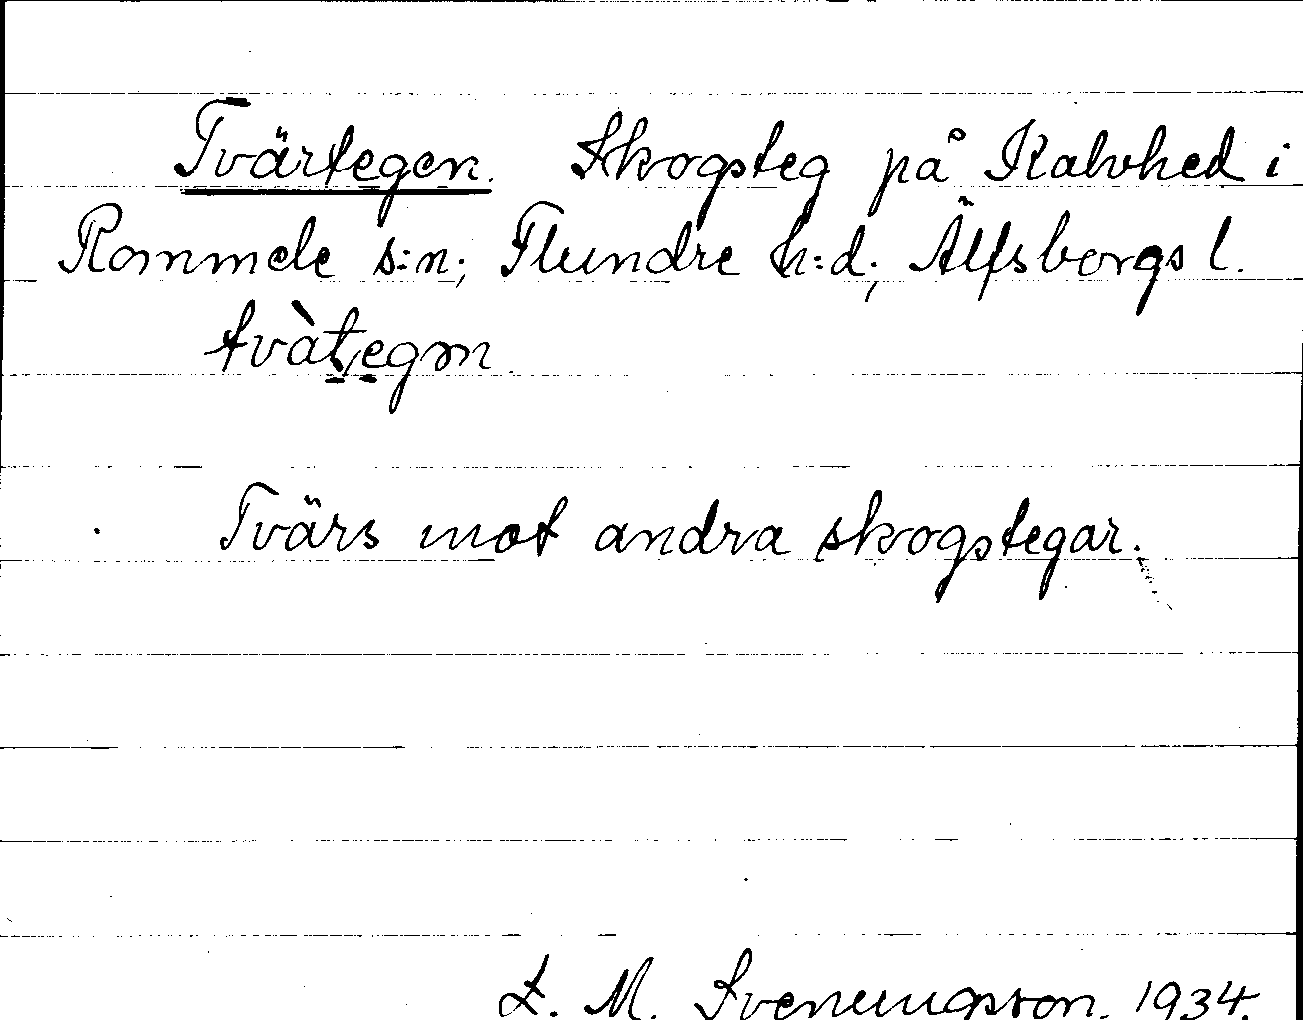 Tvärtegen. Skogsteg på Kalvhed i
Rommele s:n; Flundre h:d; Älfsborgs l.
tvàtegm
Tvärs mot andra skogstegar.
M. Svenungsson. 1934.